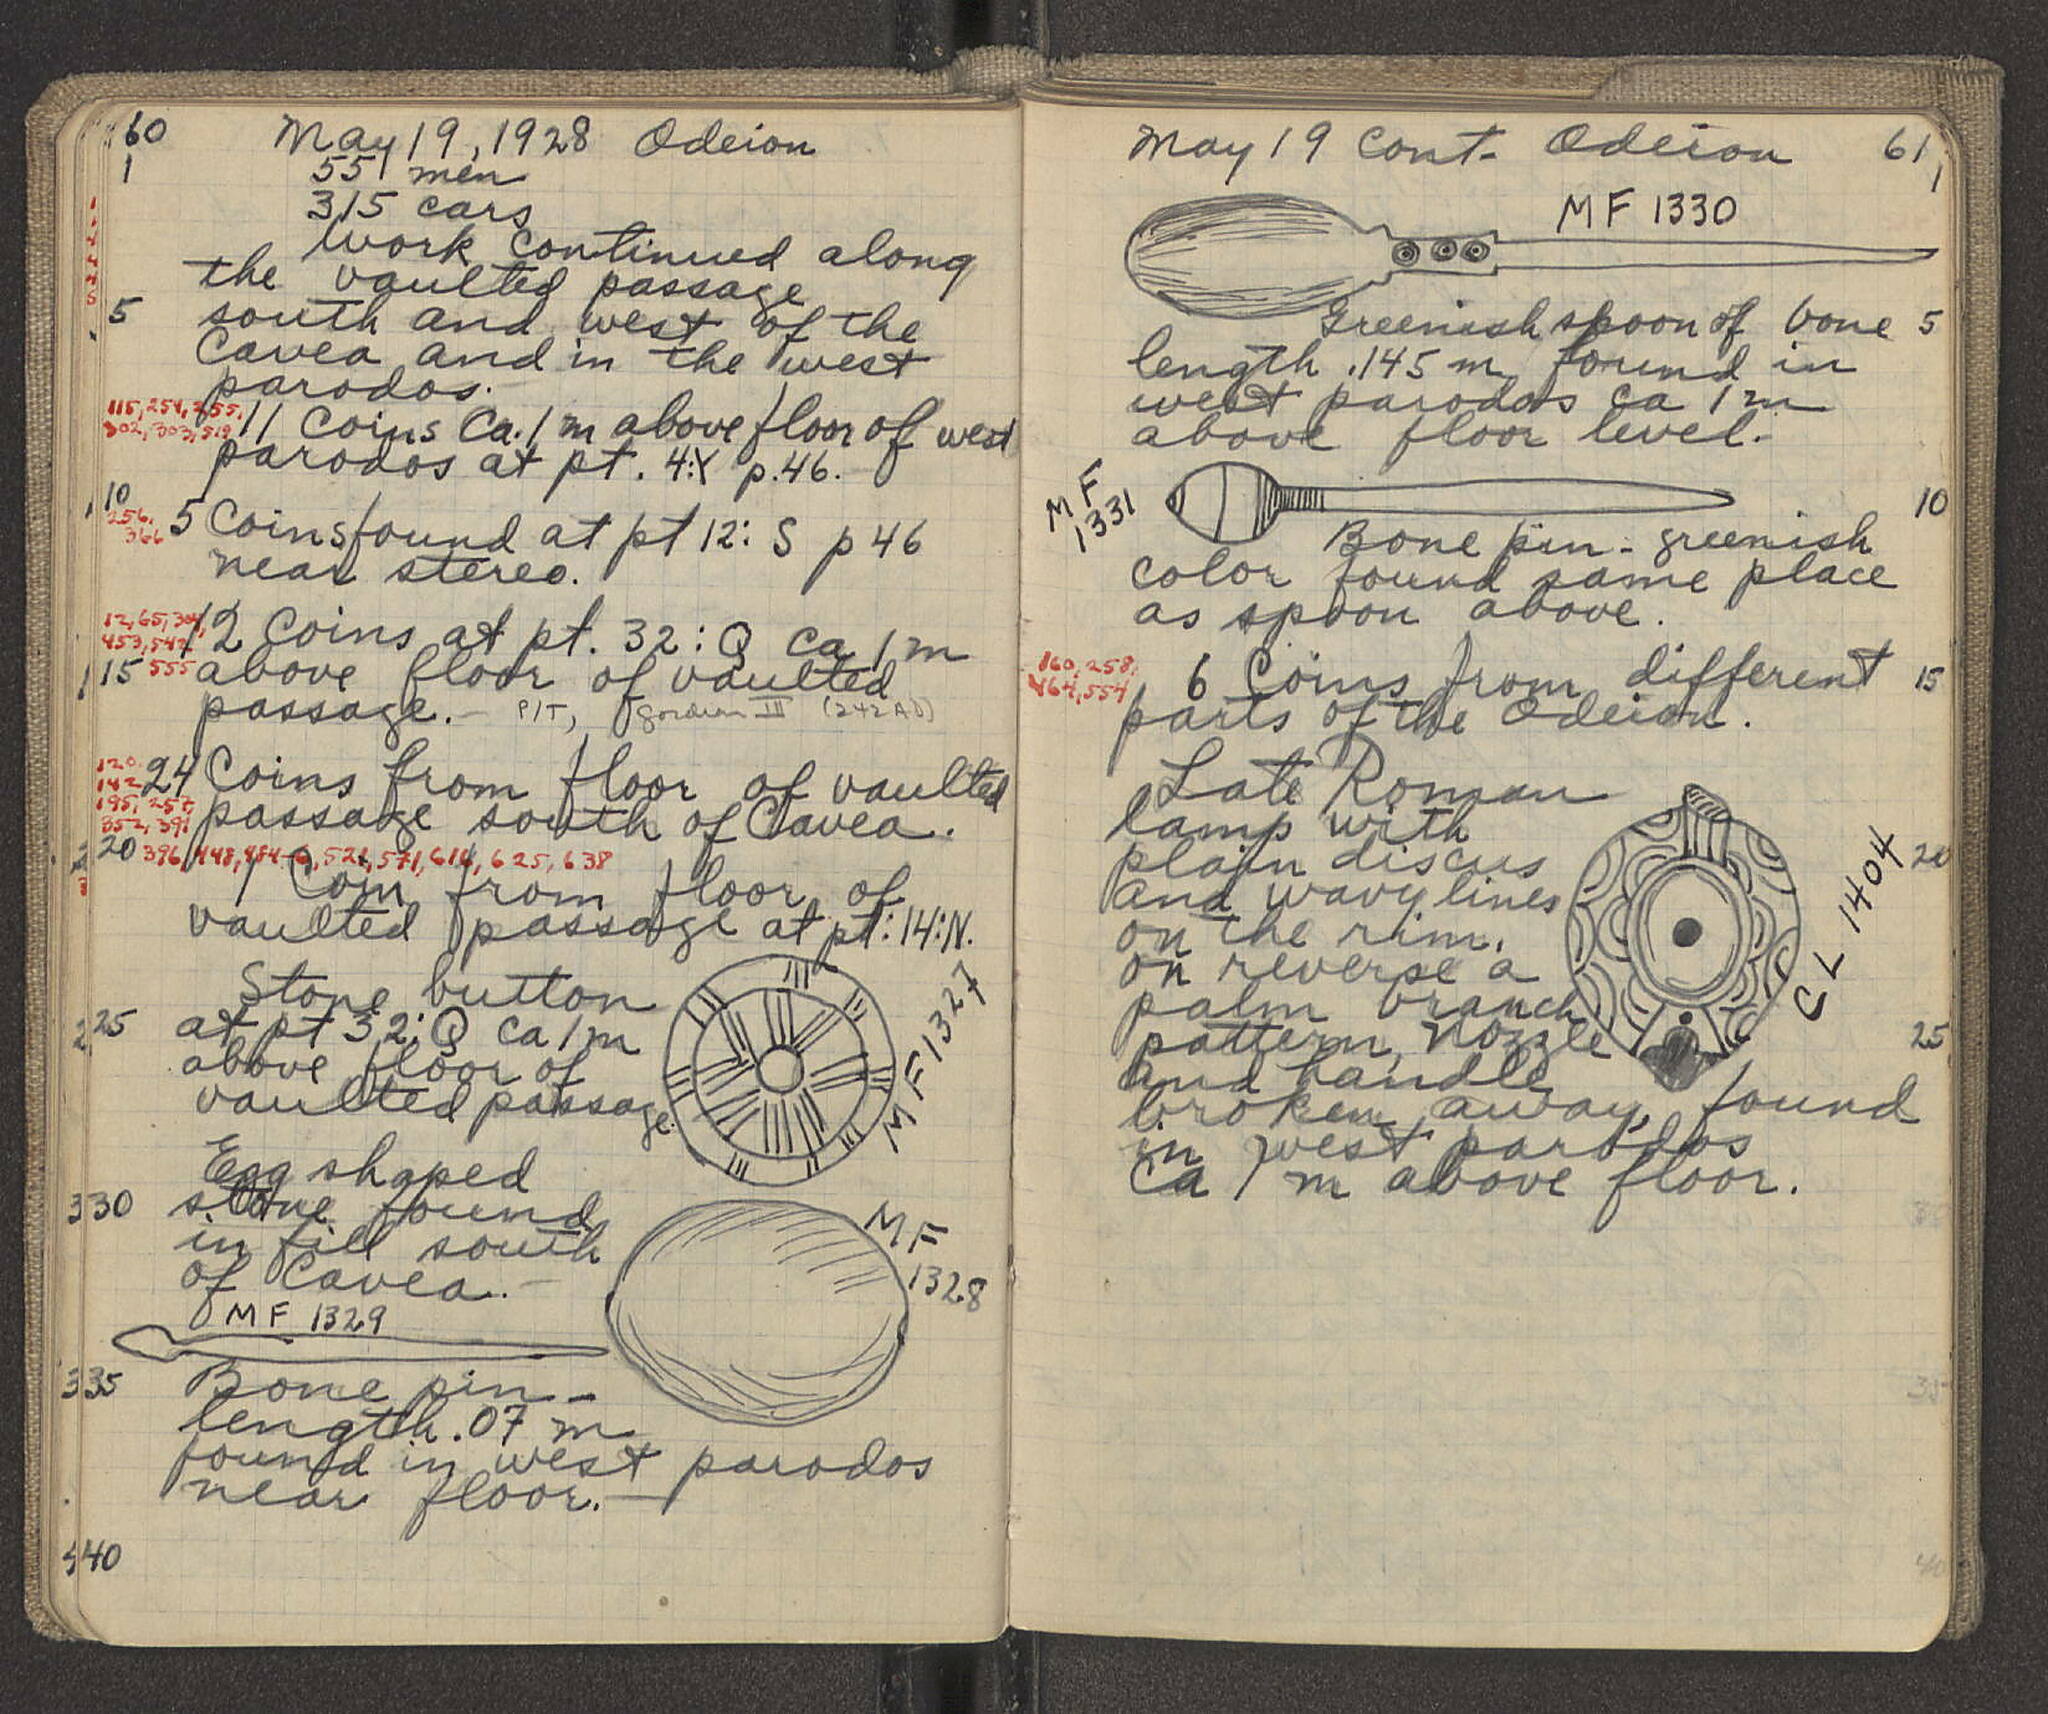 60
May 19, 1928 Odeion
1
55 men
315 cars
Work continued along
the vaulted passage
5 south and west of the
Cavea and in the west
parodos.
115, 254, 255,
302, 303, 519
11 Coins Ca. 1 m above floor of west
parodos at pt. 4:Y p.46.
10
256,
366
5 Coins found at pt 12: S p 46
near stereo.
12, 65, 304,
453, 542,
555
12 Coins at pt. 32: Q ca 1 m
15 above floor of vaulted
passage. - P/T, Gordian III (242 AD)
120
142
195, 257,
352, 391
24 Coins from floor of vaulted
passage south of Cavea.
20 396, 448, 484-6, 521, 571, 616, 625, 638
1 Coin from floor of
vaulted passage at pt: 14:N.
Stone button
25 at pt 32: Q ca 1 m
above floor of
vaulted passage.
MF 1327
Egg shaped
30 stone found
in fill south
of Cavea. -
MF
1328
MF 1329
35 Bone pin -
length .07 m
found in west parodos
near floor. -
40
May 19 Cont- Odeion 61
1
MF 1330
Greenish spoon of bone 5
length .145 m found in
west parodos ca 1 m
above floor level.
MF
1331
10
Bone pin - greenish
color found same place
as spoon above.
160, 258,
464, 554
6 Coins from different 15
parts of the Odeion.
Late Roman
lamp with
plain discus 20
and wavy lines
on the rim.
on reverse a
palm branch
pattern, Nozzle 25
and handle
broken away, found
in west parodos
Ca 1 m above floor.
CL 1404
35
40